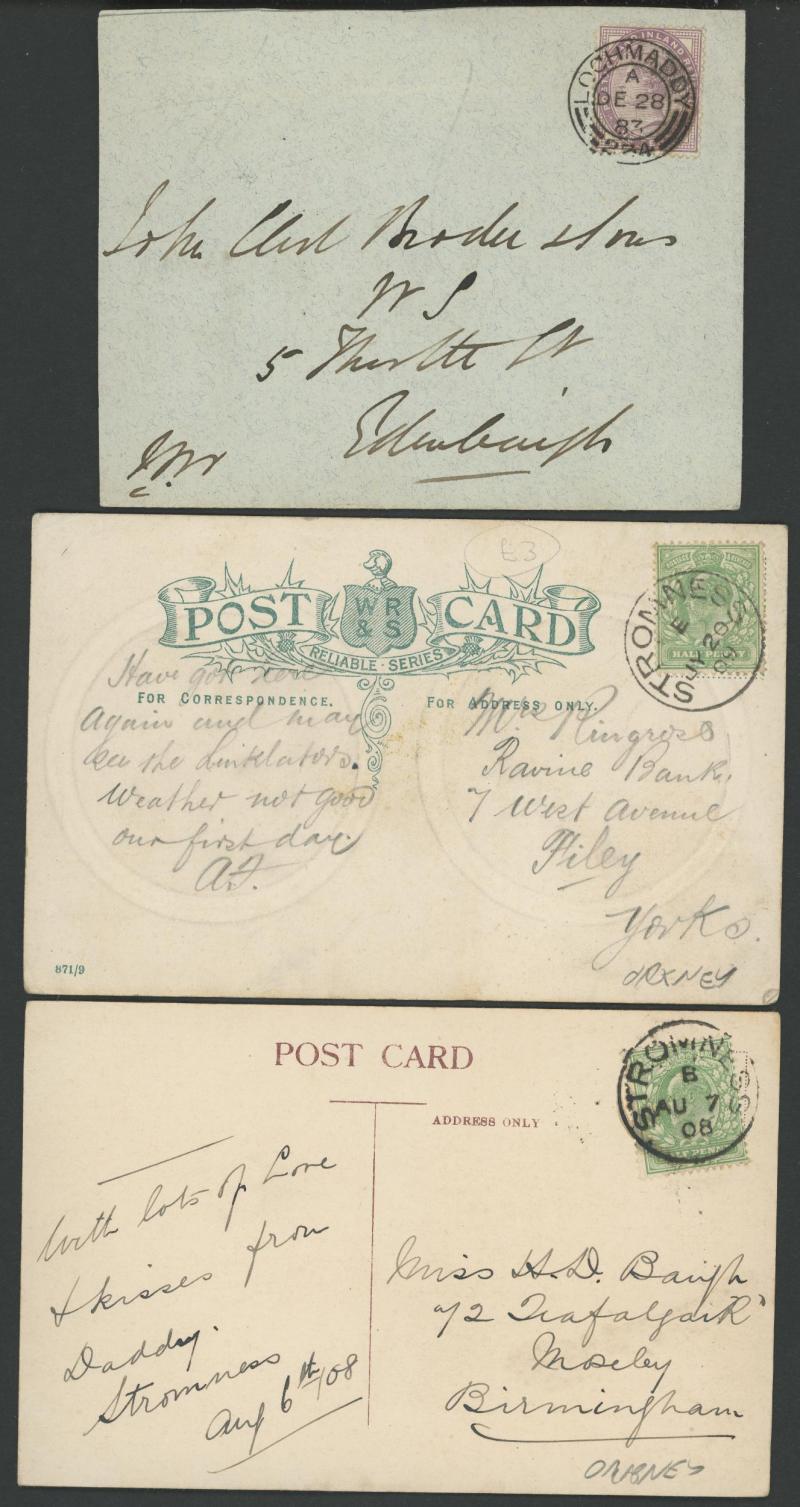 INLAND RE
LOCHMADDY
A
DE 28
83
224
John Broder & Sons
W S
5 St
Edinburgh
£3
POST CARD
WR
& S
RELIABLE · SERIES
STROMNESS
E
JY 20
09
HALF PENNY
FOR CORRESPONDENCE.
FOR ADDRESS ONLY.
Have got here
again and may
see the Linklaters.
Weather not good
our first day.
Mrs Ringrose
Ravine Bank,
7 West Avenue
Filey
Yorks.
871/9
ORKNEY
POST CARD
ADDRESS ONLY
STROMNESS
B
AU 7
08
HALF PENNY
With lots of Love
& kisses from
Daddy.
Stromness
Aug 6th/08
Miss H. D. Baugh
72 Trafalgar Rd
Moseley
Birmingham
ORKNEY